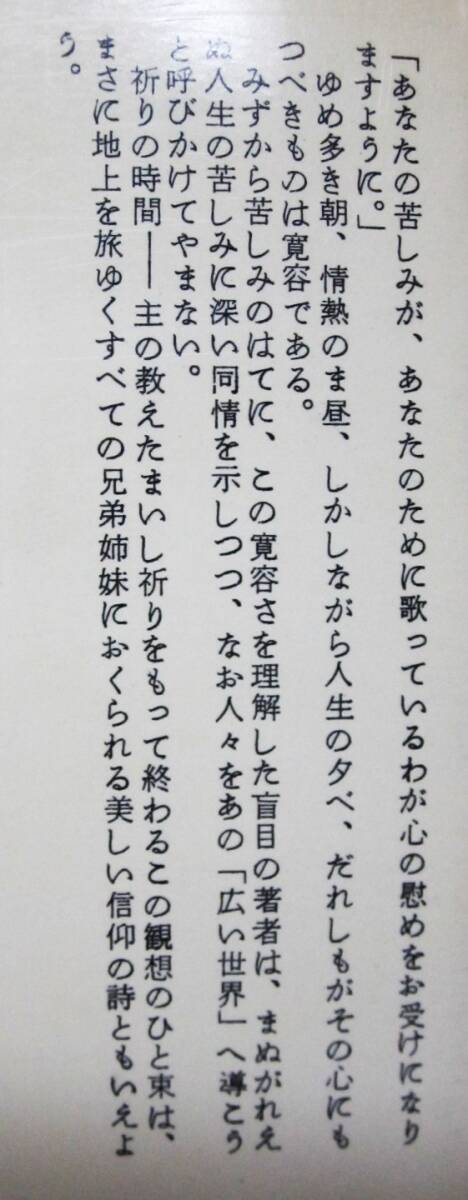 「あなたの苦しみが、あなたのために歌っているわが心の慰めをお受けになり
ますように。」
ゆめ多き朝、情熱のま昼、しかしながら人生の夕べ、だれしもがその心にも
つべきものは寛容である。
みずから苦しみのはてに、この寛容さを理解した盲目の著者は、まぬがれえ
ぬ人生の苦しみに深い同情を示しつつ、なお人々をあの「広い世界」へ導こう
と呼びかけてやまない。
祈りの時間――主の教えたまいし祈りをもって終わるこの観想のひと束は、
まさに地上を旅ゆくすべての兄弟姉妹におくられる美しい信仰の詩ともいえよ
う。